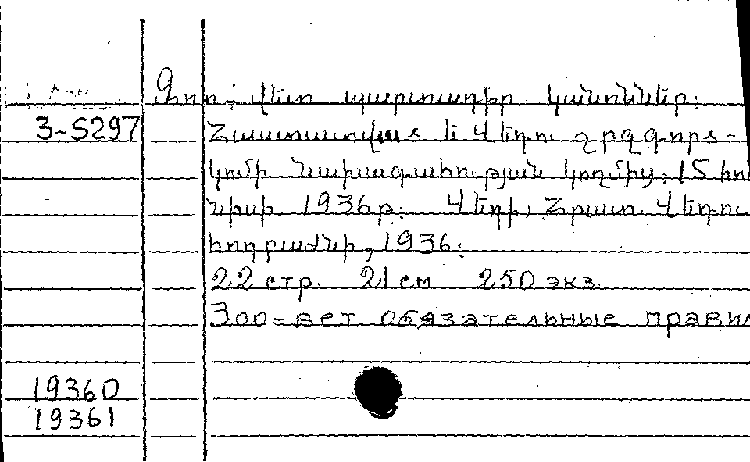 Զոո-վետ պարտադիր կանոններ:
3-5297
Հաստատված է Վեդու շրջգործ-
կոմի նախագահության կողմից 15 հու
նիսի 1936թ: Վեդի, Հրատ. Վեդու
1936:
22 стр. 21 см 250 экз
Зоо-вет обязательные правил
19360
19361